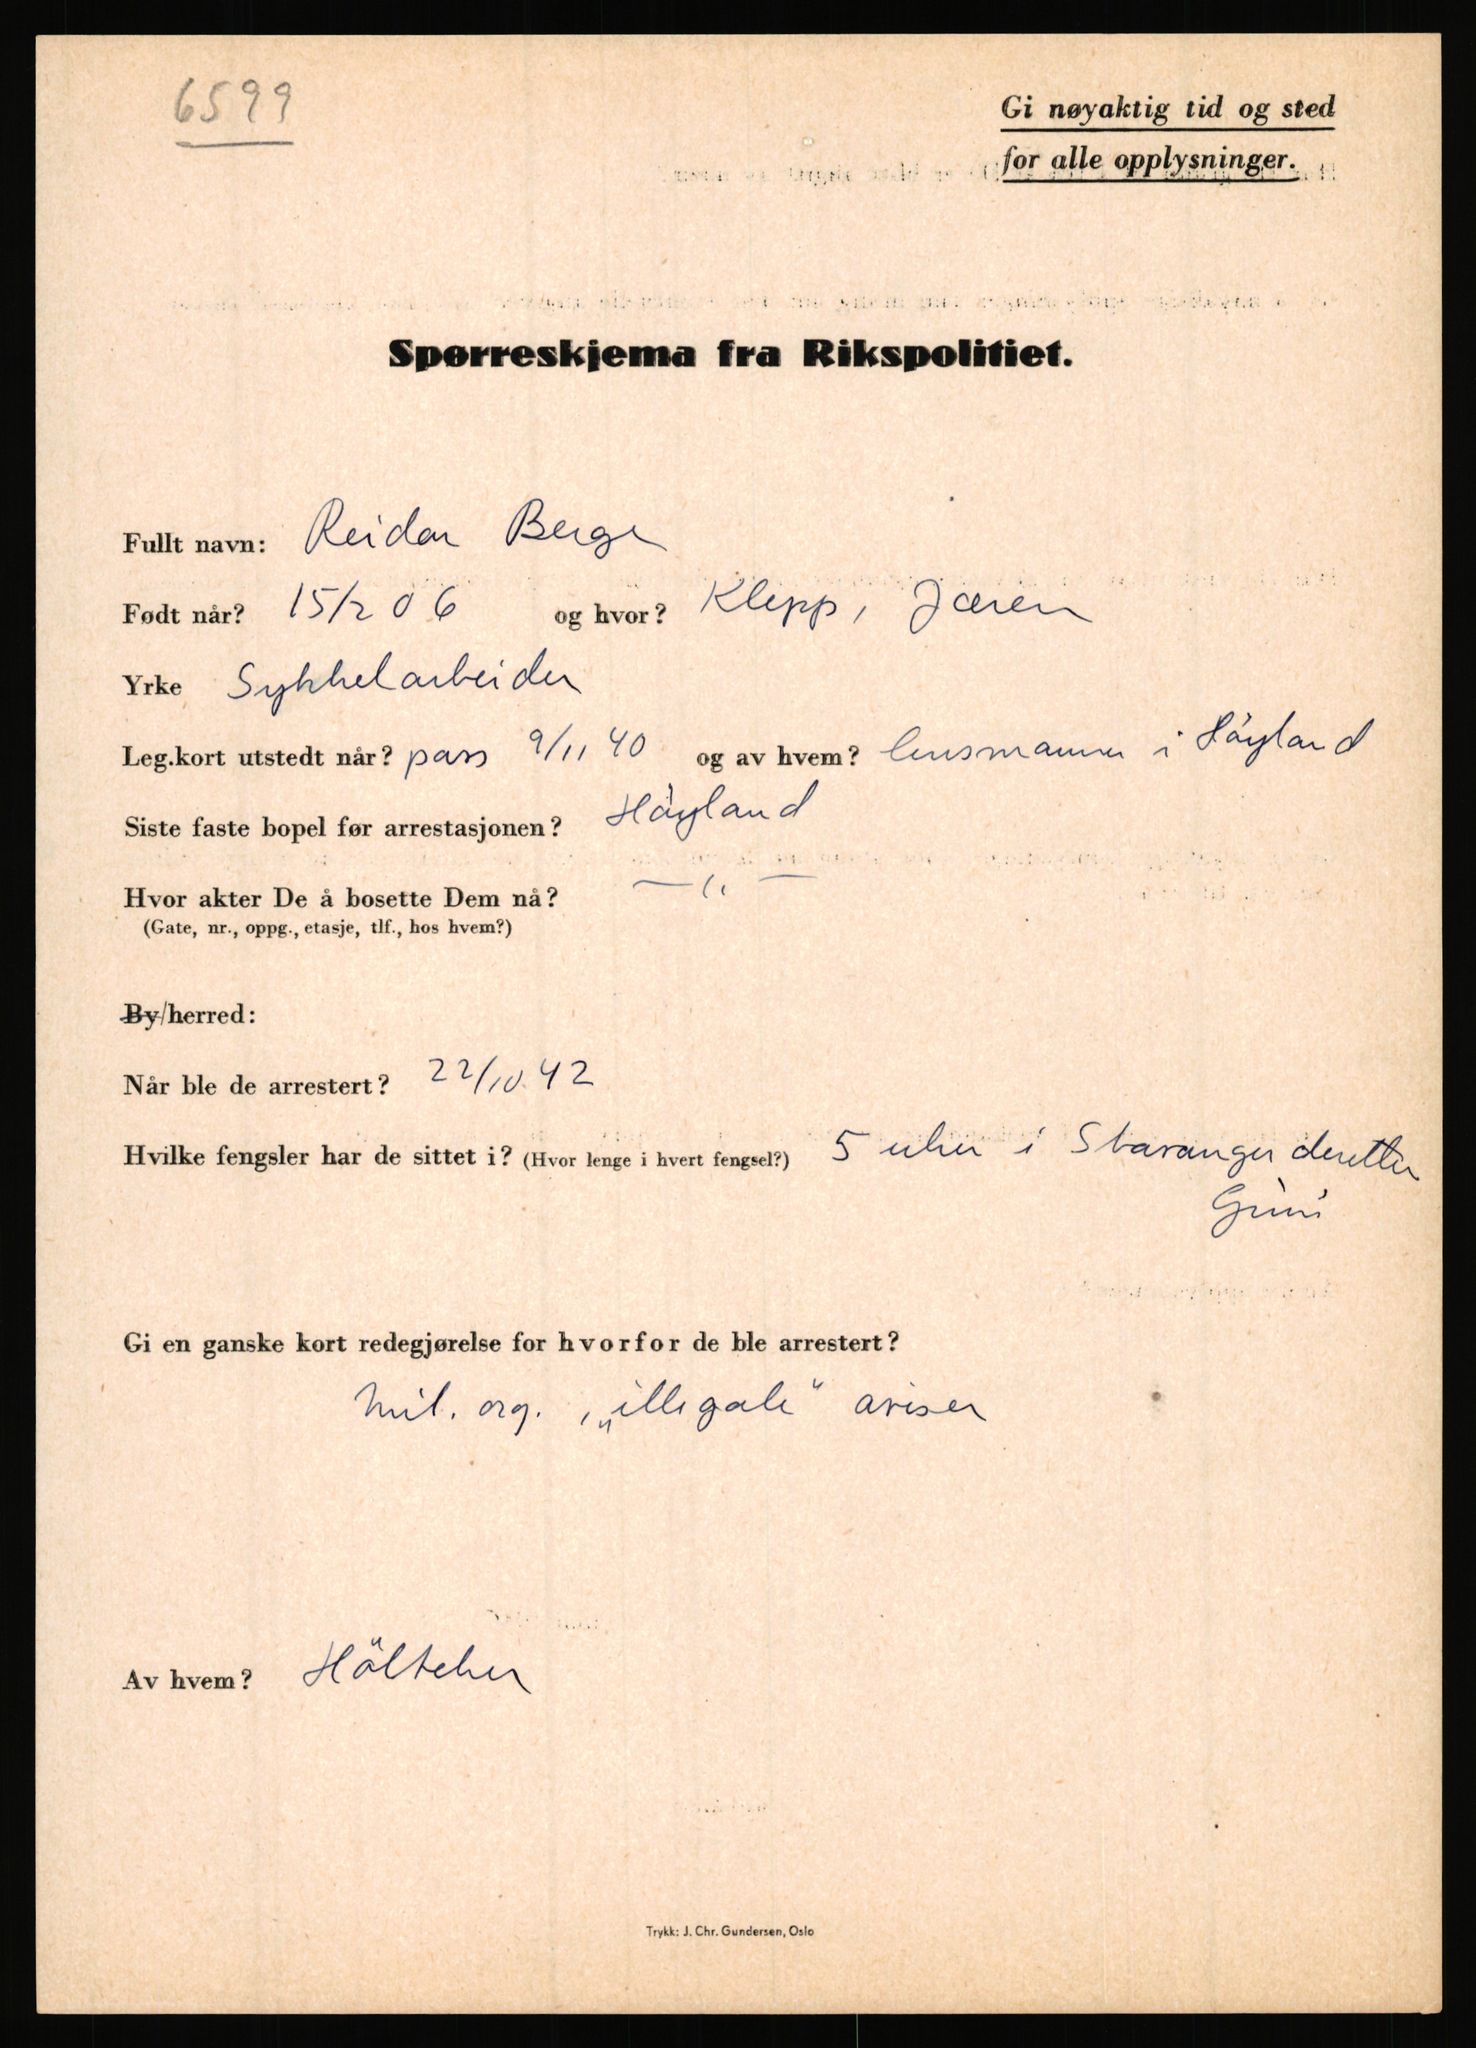 6599
Gi nøyaktig tid og sted
for alle opplysninger.
Spørreskjema fra Rikspolitiet.
Fullt navn: Reidar Berge
Født når? 15/2 06 og hvor? Klepp, Jæren
Yrke Sykkelarbeider
Leg.kort utstedt når? pass 9/11 40 og av hvem? lensmannen i Höyland
Siste faste bopel før arrestasjonen? Höyland
Hvor akter De å bosette Dem nå? —„—
(Gate, nr., oppg., etasje, tlf., hos hvem?)
By/herred:
Når ble de arrestert? 22/10.42
Hvilke fengsler har de sittet i? (Hvor lenge i hvert fengsel?) 5 uker i Stavanger deretter
Grini
Gi en ganske kort redegjørelse for hvorfor de ble arrestert?
Mil. org., „illegale" aviser
Av hvem? Hölscher
Trykk: J. Chr. Gundersen, Oslo